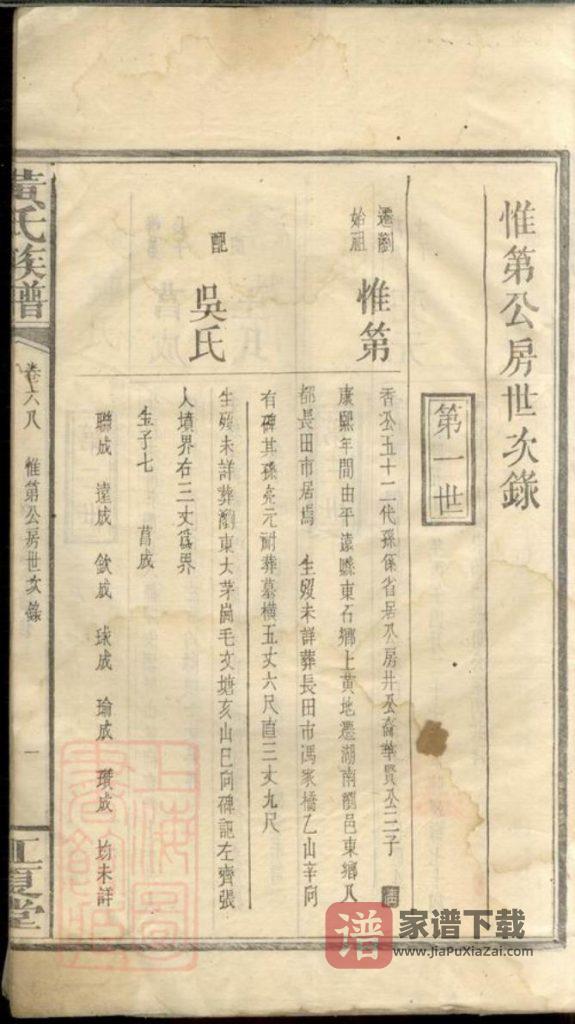 惟第公房世次錄
第一世
遷瀏始祖
惟第
香公五十二代孫係省居公房井公裔華賢公三子
康熙年間由平遠縣東石鄉上黄地遷湖南瀏邑東鄉八
都長田市居焉 生歿未詳葬長田市馮家橋乙山辛向
有碑其孫亮元附葬墓橫五丈六尺直三丈九尺
配
吳氏
生歿未詳葬瀏東大茅崗毛文塘亥山巳向碑記左齊張
人墳界右三丈爲界
生子七 菖成
聯成 遠成 欽成 球成 瑜成 瓚成 均未詳
黄氏族譜
卷六八 惟第公房世次錄
一
江夏堂
上海圖書館藏
譜
家谱下载
www.JiaPuXiaZai.com